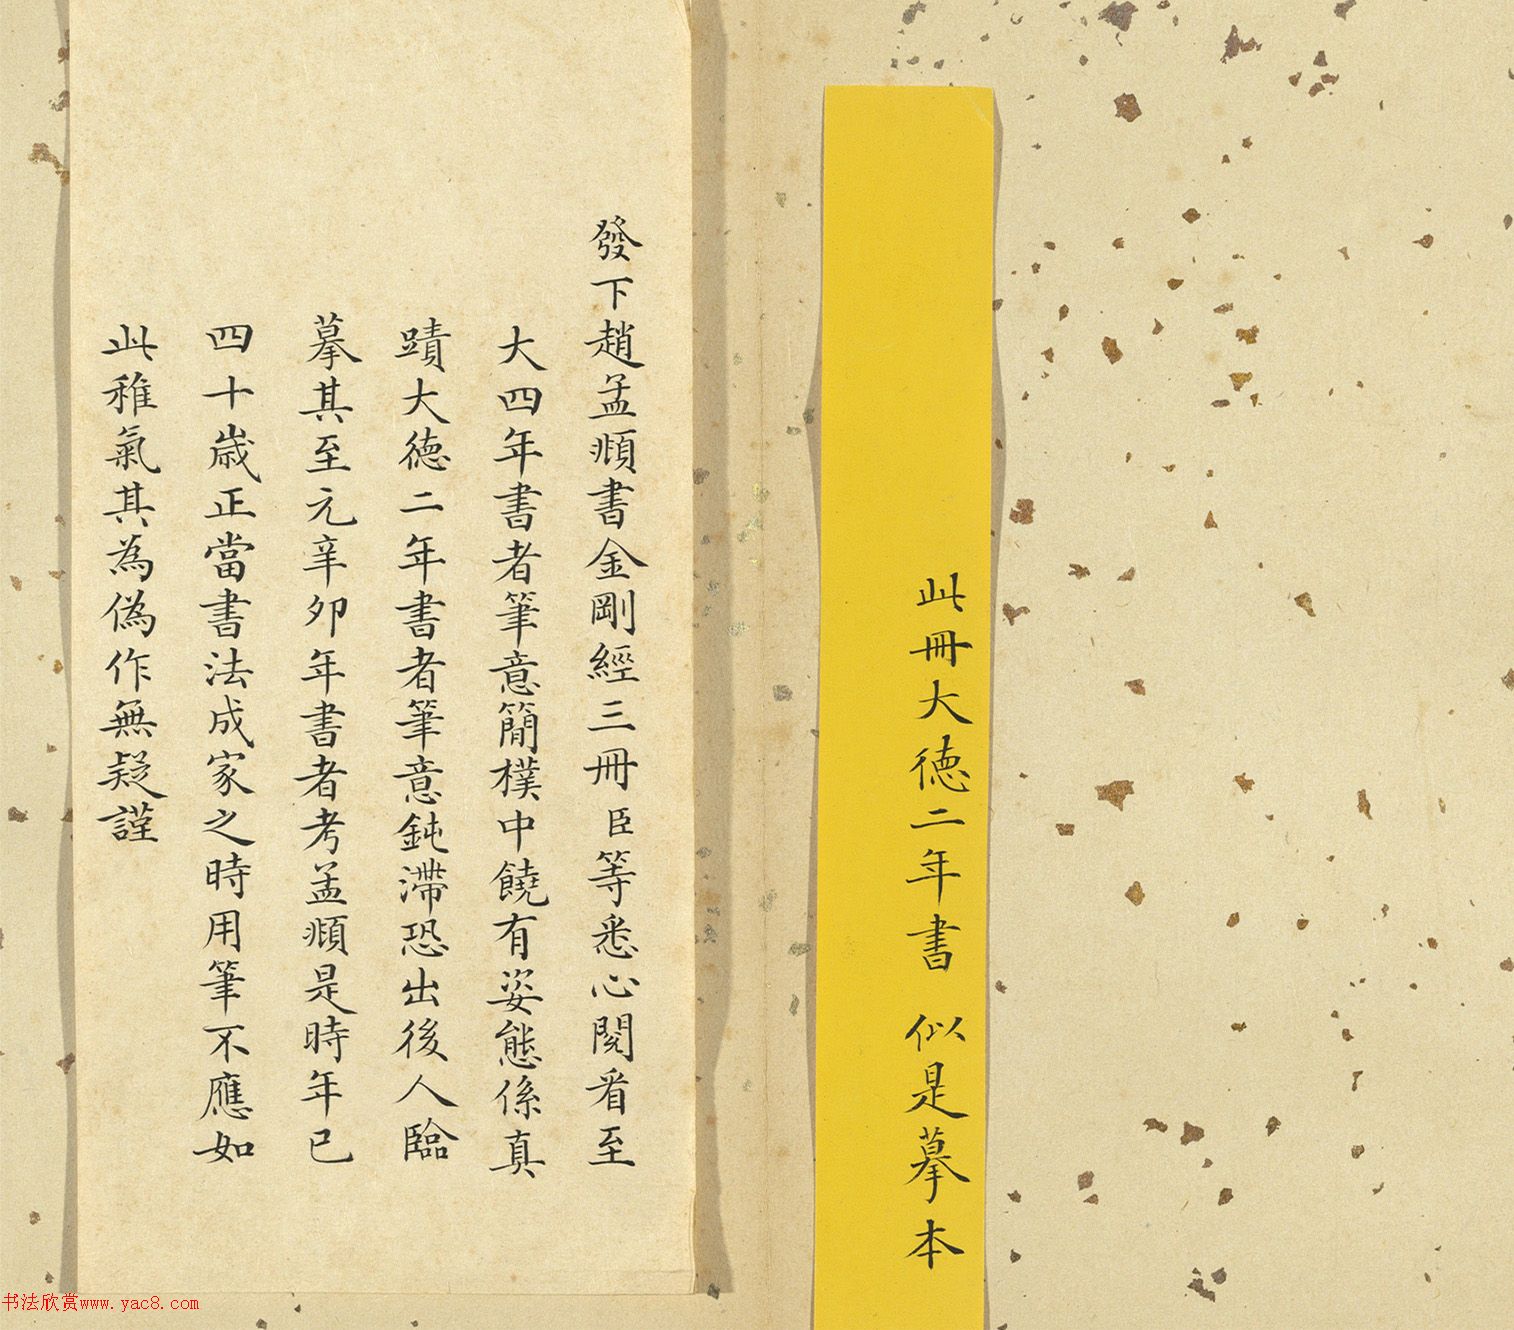 此冊大德二年書 似是摹本
發下趙孟頫書金剛經三冊臣等悉心閱看至
大四年書者筆意簡樸中饒有姿態係真
蹟大德二年書者筆意鈍滯恐出後人臨
摹其至元辛卯年書者考孟頫是時年已
四十歲正當書法成家之時用筆不應如
此稚氣其為偽作無疑謹
书法欣赏www.yac8.com